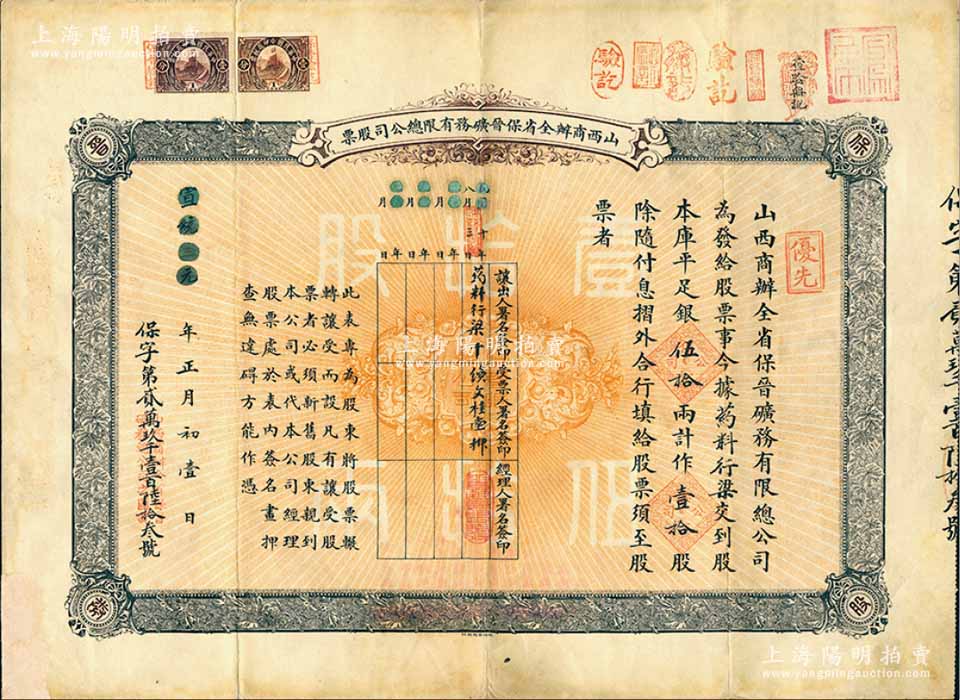 上海陽明拍賣
www.yangmingauction.com
驗訖
驗訖
查驗無訛
山西商辦全省保晉礦務有限總公司股票
保
晉
優先
山西商辦全省保晉礦務有限總公司
為發給股票事今據葯料行梁交到股
本庫平足銀伍拾兩計作壹拾股
除隨付息摺外合行填給股票須至股
票者
壹拾股
伍拾兩
讓出人署名簽印
受票人署名簽印
經理人署名簽印
年 八月 十三日
葯料行梁
年 月 日
年 月 日
年 月 日
此表專為股東將股票輾
轉讓受而設凡有讓受股
票者必須新舊股東親到
本公司或代本公司經理
股票處於表內簽名畫押
查無違碍方能作憑
宣統三元年正月初壹日
保字第貳萬玖千壹百陸拾叁號
股
票
上海陽明拍賣
www.yangmingauction.com
上海陽明拍賣
www.yangmingauction.com